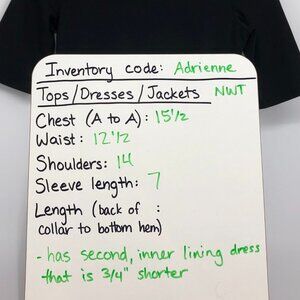 Inventory code: Adrienne
Tops/Dresses/Jackets NWT
Chest (A to A): 15 1/2
Waist: 12 1/2
Shoulders: 14
Sleeve length: 7
Length (back of :
collar to bottom hem)
- has second, inner lining dress
that is 3/4" shorter